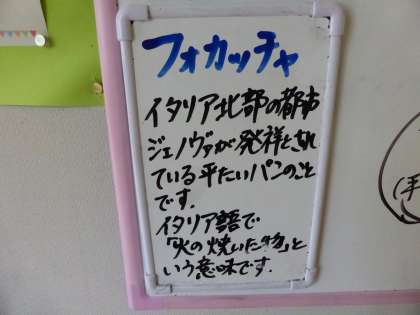 フォカッチャ
イタリア北部の都市
ジェノヴァが発祥とされ
ている平たいパンのこと
です.
イタリア語で
「火の焼いた物」と
いう意味です.
(手